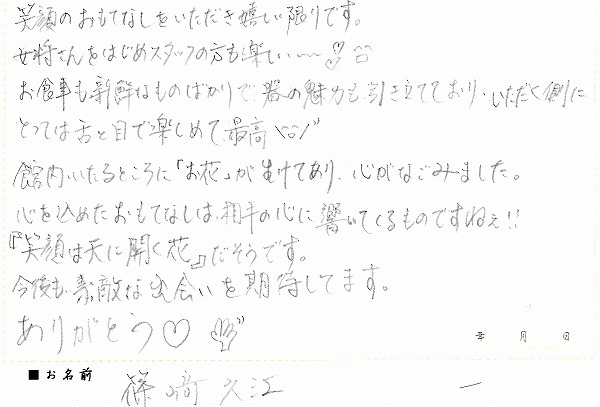 笑顔のおもてなしをいただき嬉しい限りです。
女将さんをはじめスタッフの方も楽しい〜〜♡
お食事も新鮮なものばかりで、器の魅力も引き立てており、いただく側に
とっては舌と目で楽しめて最高\(^^)/
館内いたるところに「お花」が生けてあり、心がなごみました。
心を込めたおもてなしは、相手の心に響いてくるものですねぇ!!
『笑顔は天に開く花』だそうです。
今後も素敵な出会いを期待してます。
ありがとう♡
年 月 日
■お名前
篠﨑久江